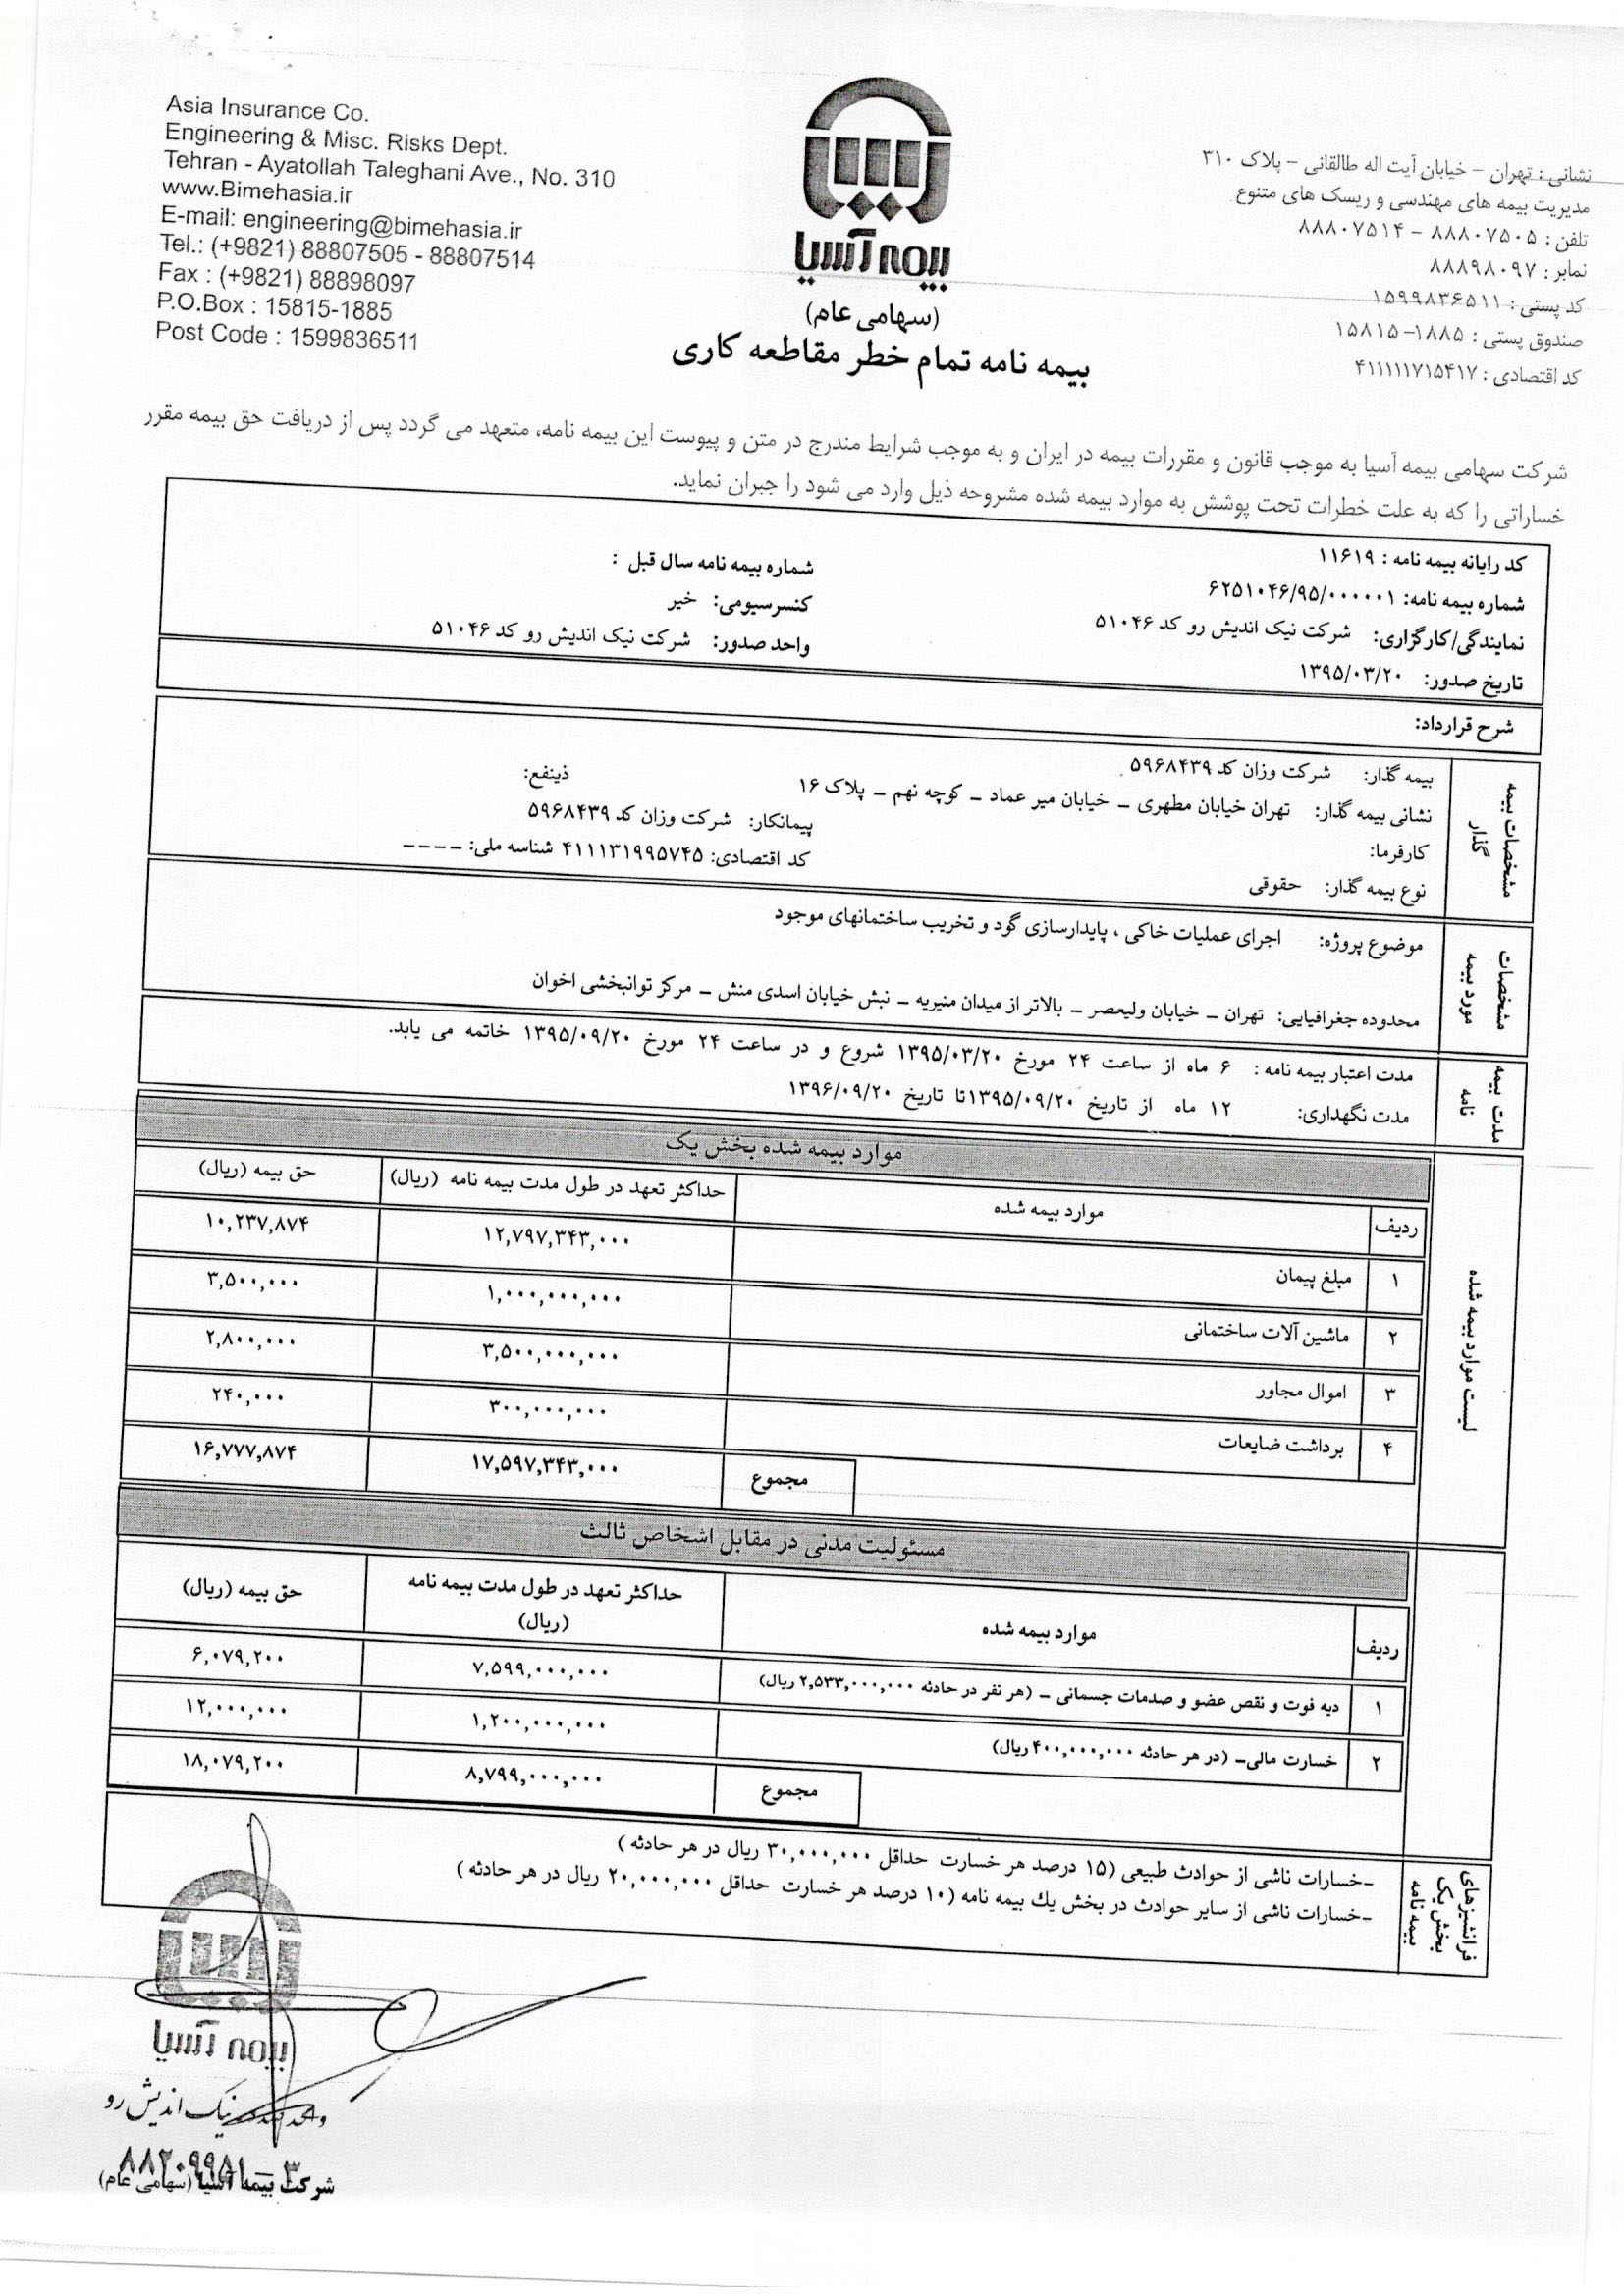 Asia Insurance Co.
Engineering & Misc. Risks Dept.
Tehran - Ayatollah Taleghani Ave., No. 310
www.Bimehasia.ir
E-mail: engineering@bimehasia.ir
Tel.: (+9821) 88807505 - 88807514
Fax : (+9821) 88898097
P.O.Box : 15815-1885
Post Code : 1599836511
بیمه آسیا
(سهامی عام)
بیمه نامه تمام خطر مقاطعه کاری
نشانی : تهران - خیابان آیت اله طالقانی - پلاک ۳۱۰
مدیریت بیمه های مهندسی و ریسک های متنوع
تلفن : ۸۸۸۰۷۵۰۵ - ۸۸۸۰۷۵۱۴
نمابر : ۸۸۸۹۸۰۹۷
کد پستی : ۱۵۹۹۸۳۶۵۱۱
صندوق پستی : ۱۸۸۵-۱۵۸۱۵
کد اقتصادی : ۴۱۱۱۱۱۷۱۵۴۱۷
شرکت سهامی بیمه آسیا به موجب قانون و مقررات بیمه در ایران و به موجب شرایط مندرج در متن و پیوست این بیمه نامه، متعهد می گردد پس از دریافت حق بیمه مقرر
خساراتی را که به علت خطرات تحت پوشش به موارد بیمه شده مشروحه ذیل وارد می شود را جبران نماید.
کد رایانه بیمه نامه : ۱۱۶۱۹ شماره بیمه نامه سال قبل :
شماره بیمه نامه: ۶۲۵۱۰۴۶/۹۵/۰۰۰۰۰۱ کنسرسیومی: خیر
نمایندگی/کارگزاری: شرکت نیک اندیش رو کد ۵۱۰۴۶ واحد صدور: شرکت نیک اندیش رو کد ۵۱۰۴۶
تاریخ صدور: ۱۳۹۵/۰۳/۲۰
شرح قرارداد:
مشخصات بیمه
گذار
بیمه گذار: شرکت وزان کد ۵۹۶۸۴۳۹ ذینفع:
نشانی بیمه گذار: تهران خیابان مطهری – خیابان میر عماد – کوچه نهم – پلاک ۱۶
کارفرما: پیمانکار: شرکت وزان کد ۵۹۶۸۴۳۹
نوع بیمه گذار: حقوقی کد اقتصادی: ۴۱۱۱۳۱۹۹۵۷۴۵ شناسه ملی: ----
مشخصات
مورد بیمه
موضوع پروژه: اجرای عملیات خاکی ، پایدارسازی گود و تخریب ساختمانهای موجود
محدوده جغرافیایی: تهران – خیابان ولیعصر – بالاتر از میدان منیریه – نبش خیابان اسدی منش – مرکز توانبخشی اخوان
مدت بیمه
نامه
مدت اعتبار بیمه نامه : ۶ ماه از ساعت ۲۴ مورخ ۱۳۹۵/۰۳/۲۰ شروع و در ساعت ۲۴ مورخ ۱۳۹۵/۰۹/۲۰ خاتمه می یابد.
مدت نگهداری: ۱۲ ماه از تاریخ ۱۳۹۵/۰۹/۲۰تا تاریخ ۱۳۹۶/۰۹/۲۰
لیست موارد بیمه شده
موارد بیمه شده بخش یک
ردیف موارد بیمه شده حداکثر تعهد در طول مدت بیمه نامه (ریال) حق بیمه (ریال)
۱ مبلغ پیمان ۱۲,۷۹۷,۳۴۳,۰۰۰ ۱۰,۲۳۷,۸۷۴
۲ ماشین آلات ساختمانی ۱,۰۰۰,۰۰۰,۰۰۰ ۳,۵۰۰,۰۰۰
۳ اموال مجاور ۳,۵۰۰,۰۰۰,۰۰۰ ۲,۸۰۰,۰۰۰
۴ برداشت ضایعات ۳۰۰,۰۰۰,۰۰۰ ۲۴۰,۰۰۰
مجموع ۱۷,۵۹۷,۳۴۳,۰۰۰ ۱۶,۷۷۷,۸۷۴
مسئولیت مدنی در مقابل اشخاص ثالث
ردیف موارد بیمه شده حداکثر تعهد در طول مدت بیمه نامه حق بیمه (ریال)
(ریال)
۱ دیه فوت و نقص عضو و صدمات جسمانی – (هر نفر در حادثه ۲,۵۳۳,۰۰۰,۰۰۰ ریال) ۷,۵۹۹,۰۰۰,۰۰۰ ۶,۰۷۹,۲۰۰
۲ خسارت مالی– (در هر حادثه ۴۰۰,۰۰۰,۰۰۰ ریال) ۱,۲۰۰,۰۰۰,۰۰۰ ۱۲,۰۰۰,۰۰۰
مجموع ۸,۷۹۹,۰۰۰,۰۰۰ ۱۸,۰۷۹,۲۰۰
فرانشیزهای
بخش یک
بیمه نامه
-خسارات ناشی از حوادث طبیعی (۱۵ درصد هر خسارت حداقل ۳۰,۰۰۰,۰۰۰ ریال در هر حادثه )
-خسارات ناشی از سایر حوادث در بخش یك بیمه نامه (۱۰ درصد هر خسارت حداقل ۲۰,۰۰۰,۰۰۰ ریال در هر حادثه )
بیمه آسیا
نیک اندیش رو
۸۸۲۰۹۹۸۱ – ۳
شرکت بیمه آسیا (سهامی عام)